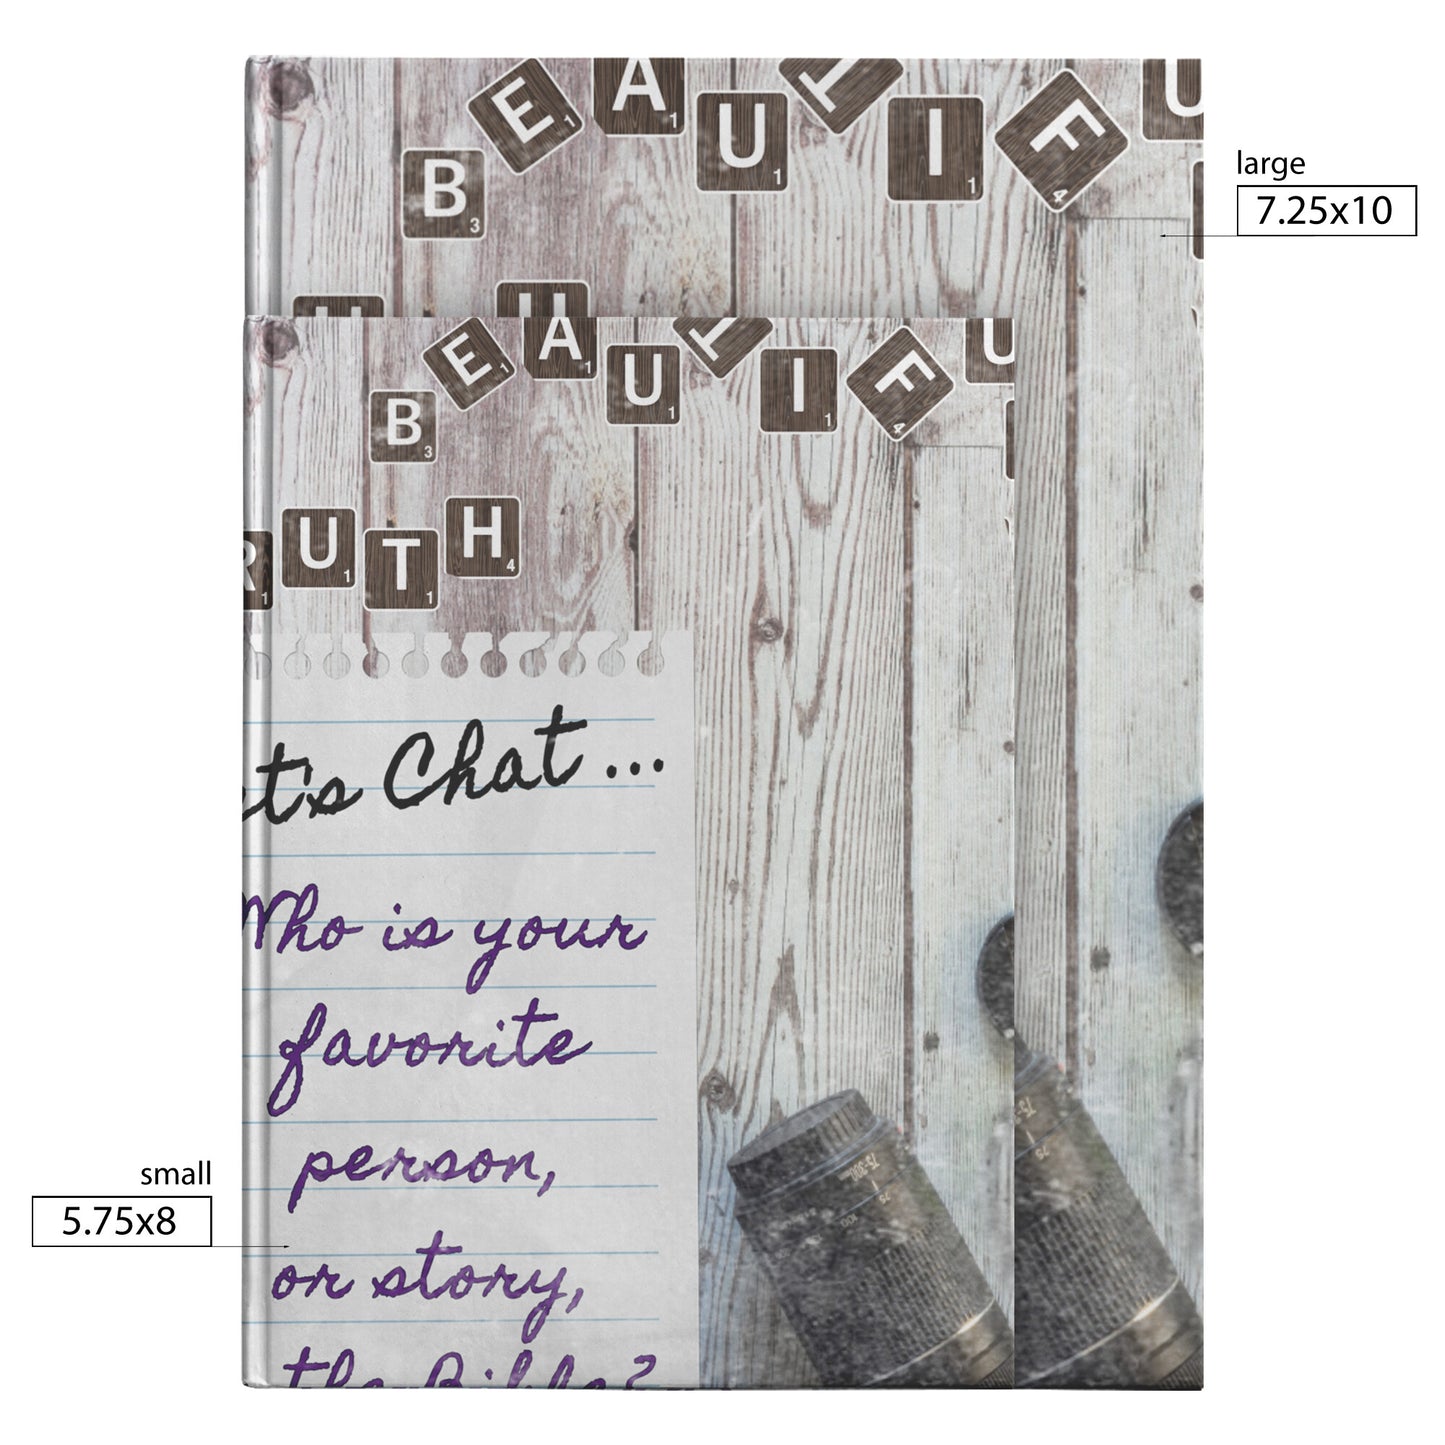 BEAUTIFU
large
7.25x10
BEAUTIFU
RUTH
et's Chat ...
Who is your
favorite
person,
or story,
the Bible?
small
5.75x8